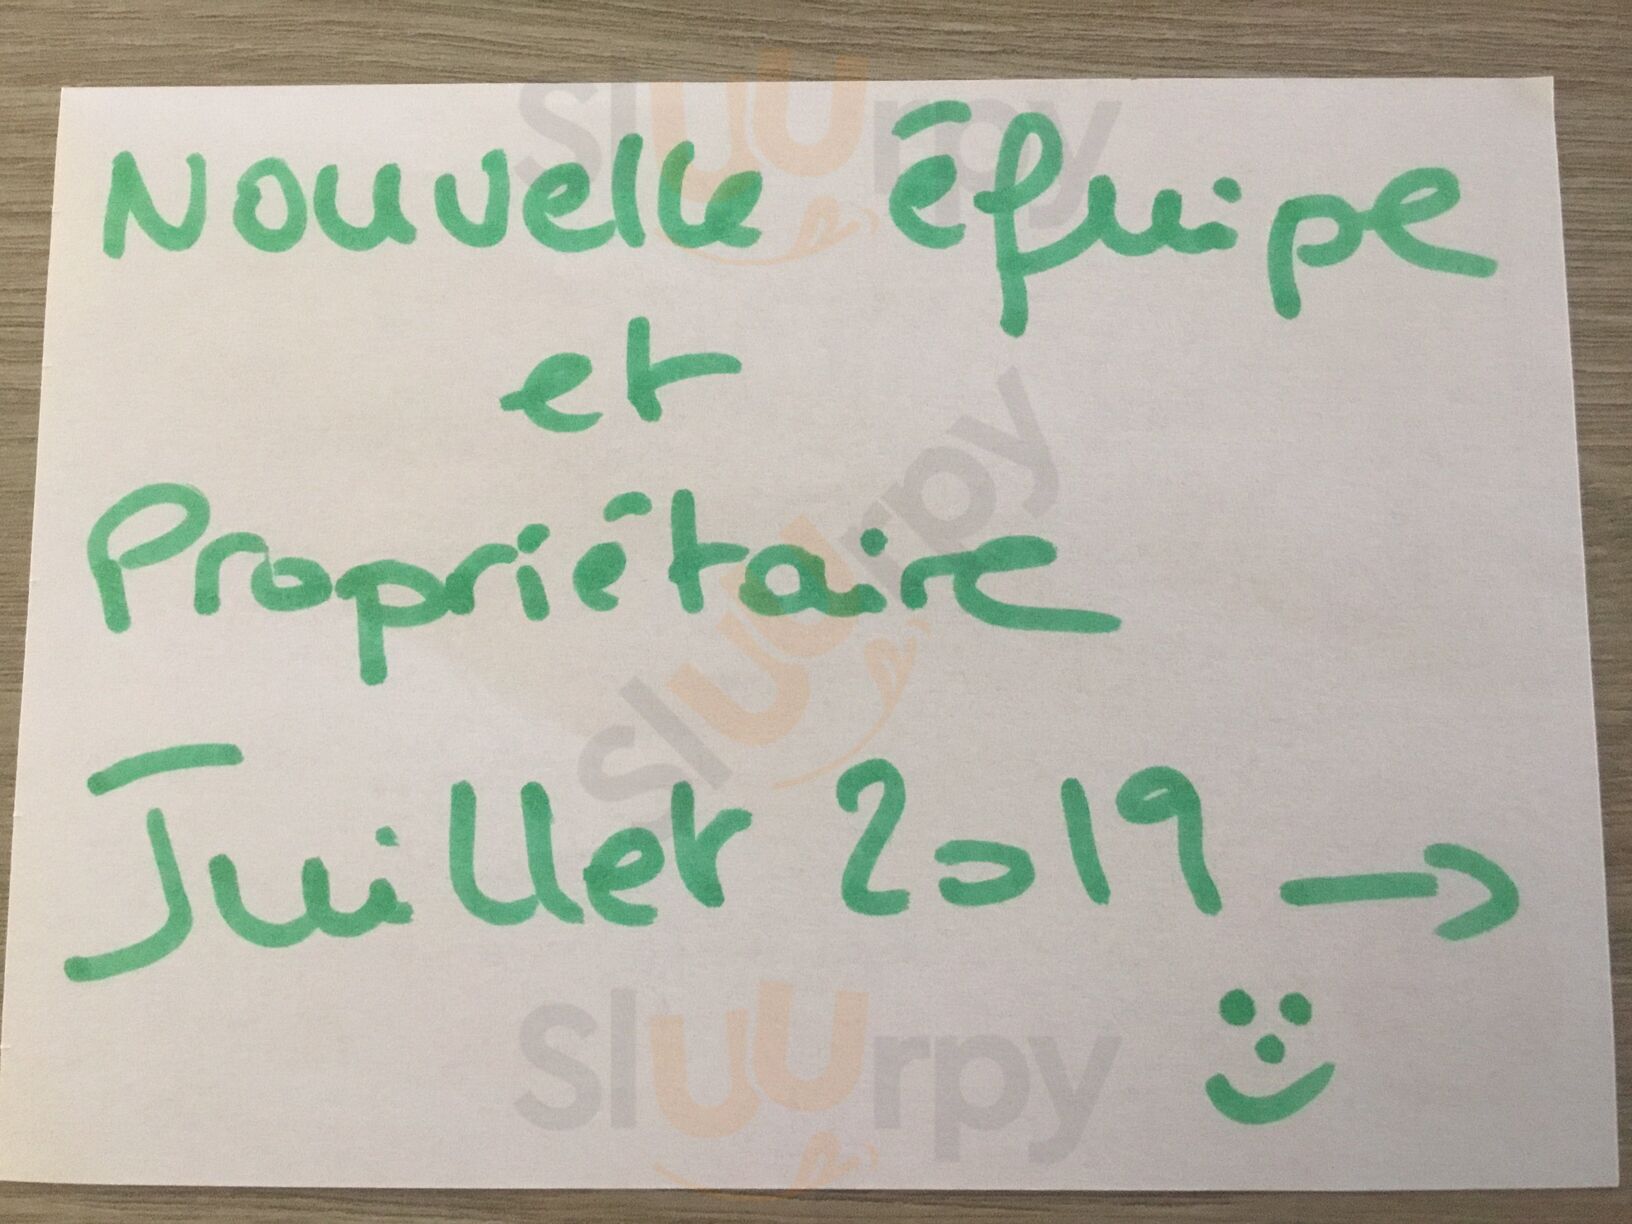 Sluurpy
Nouvelle équipe
et
Sluurpy
Propriétaire
Juillet 2019 →
Sluurpy